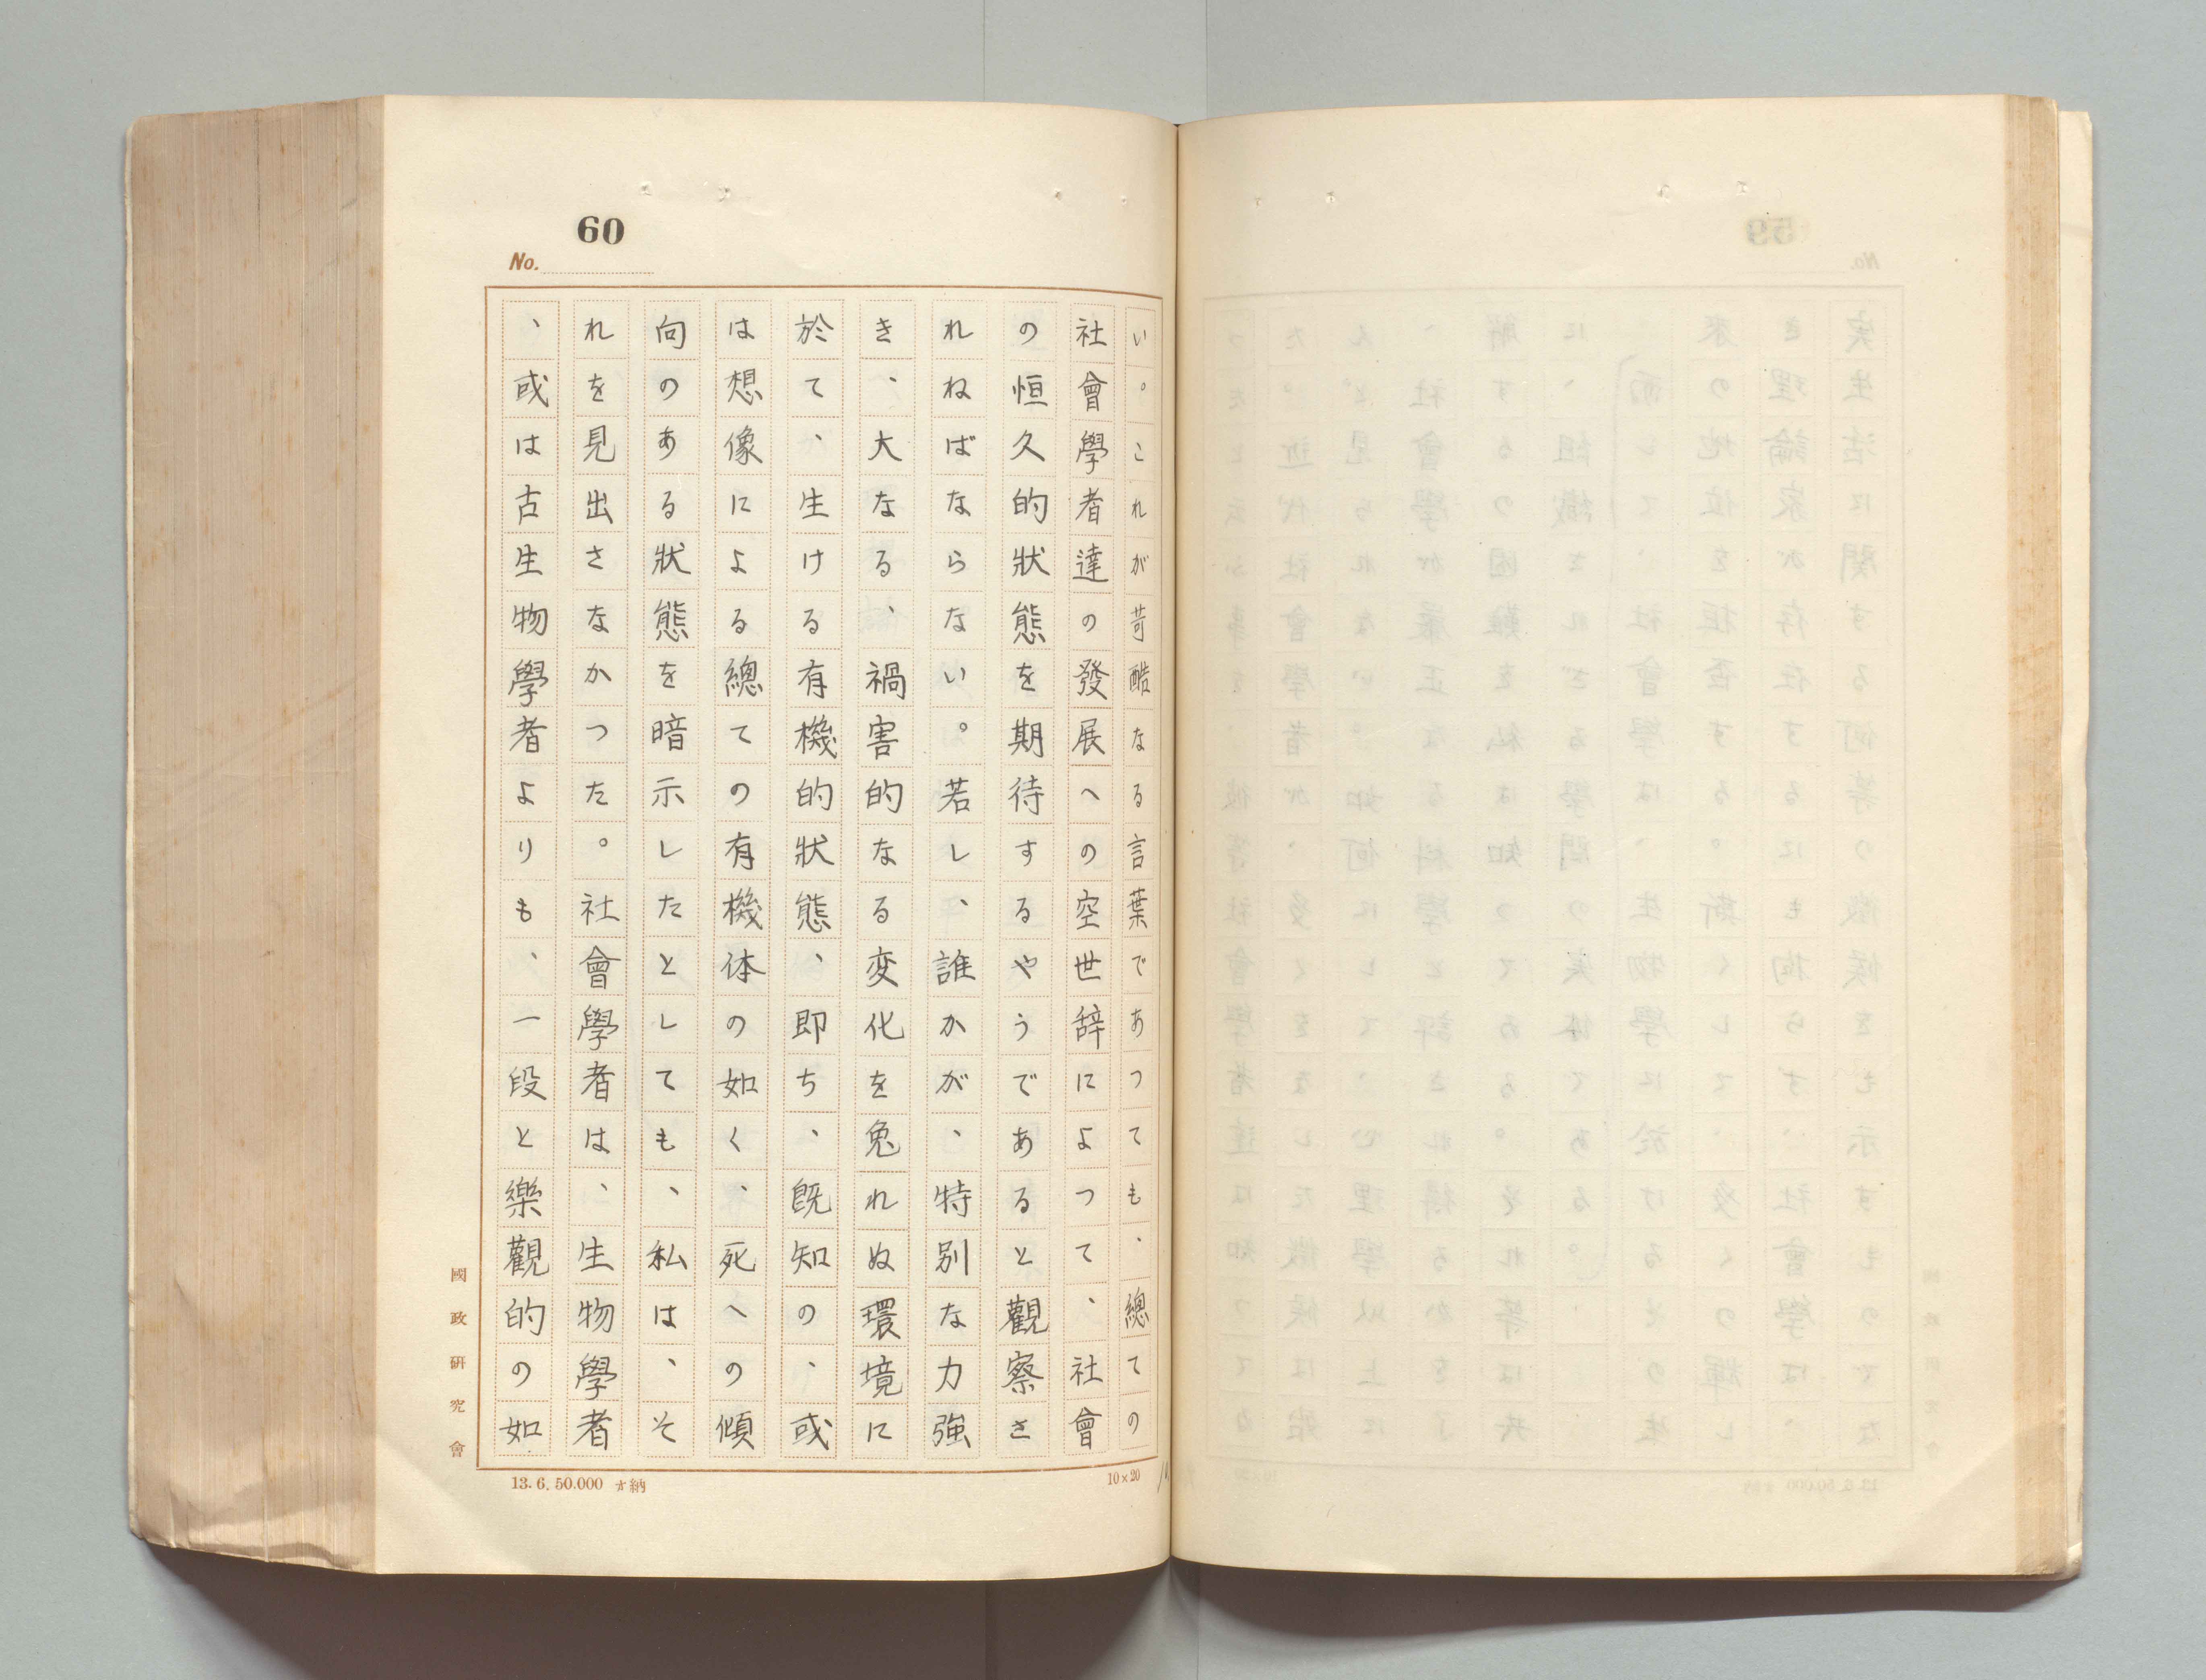 60
No.
い。これが苛酷なる言葉であつても、總ての
社會學者達の發展への空世辞によつて、社會
の恒久的狀態を期待するやうであると觀察さ
れねばならない。若し、誰かが、特別な力強
き、大なる、禍害的なる変化を免れぬ環境に
於て、生ける有機的狀態、即ち、既知の、或
は想像による總ての有機体の如く、死への傾
向のある狀態を暗示したとしても、私は、そ
れを見出さなかつた。社會學者は、生物學者
、或は古生物學者よりも、一段と樂觀的の如
國政硏究會
10×20
13.6.50.000 オ納